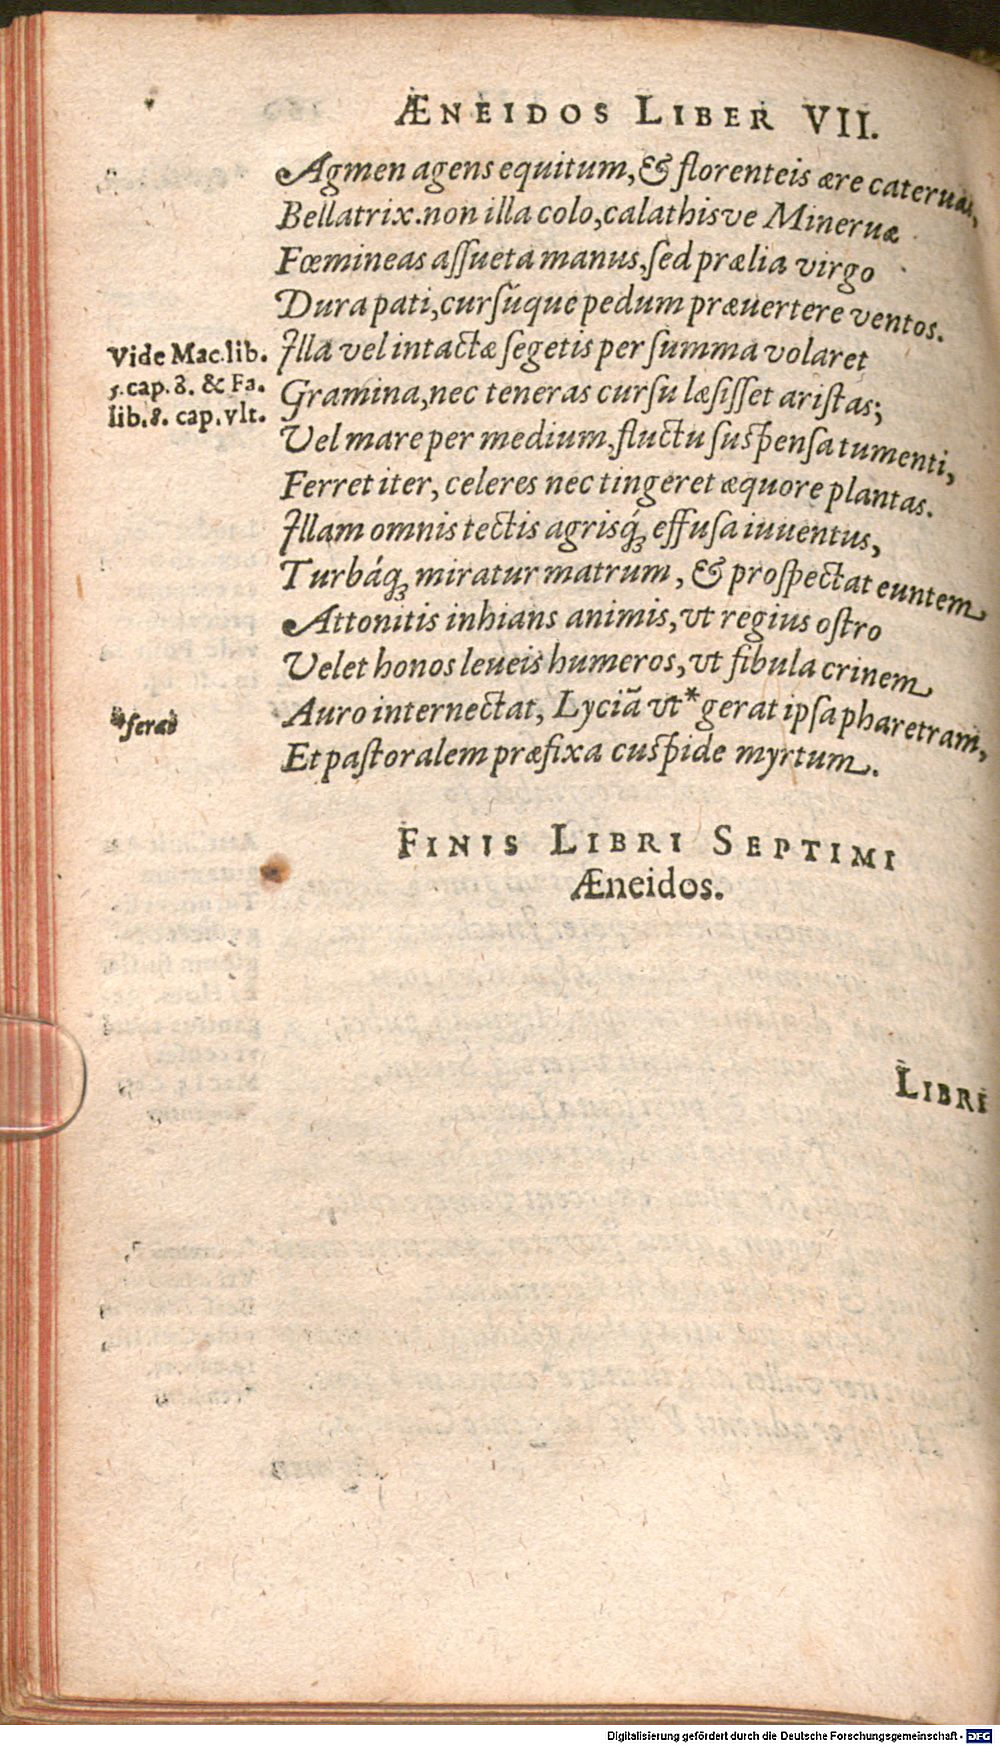 ÆNEIDOS LIBER VII.
Agmen agens equitum, & florenteis ære cateruas,
Bellatrix. non illa colo, calathisve Mineruæ
Fœmineas assueta manus, sed prælia virgo
Dura pati, cursúque pedum præuertere ventos.
Vide Mac. lib.
5. cap. 8. & Fa.
lib. 8. cap. vlt.
Illa vel intactæ segetis per summa volaret
Gramina, nec teneras cursu læsisset aristas;
Vel mare per medium, fluctu suspensa tumenti,
Ferret iter, celeres nec tingeret æquore plantas.
Illam omnis tectis agrisq́ꝫ effusa iuuentus,
Turbáqꝫ miratur matrum, & prospectat euntem
Attonitis inhians animis, vt regius ostro
Velet honos leueis humeros, vt fibula crinem
*ferat
Auro internectat, Lyciã vt* gerat ipsa pharetram,
Et pastoralem præfixa cuspide myrtum.
FINIS LIBRI SEPTIMI
Æneidos.
LIBRI
Digitalisierung gefördert durch die Deutsche Forschungsgemeinschaft - DFG